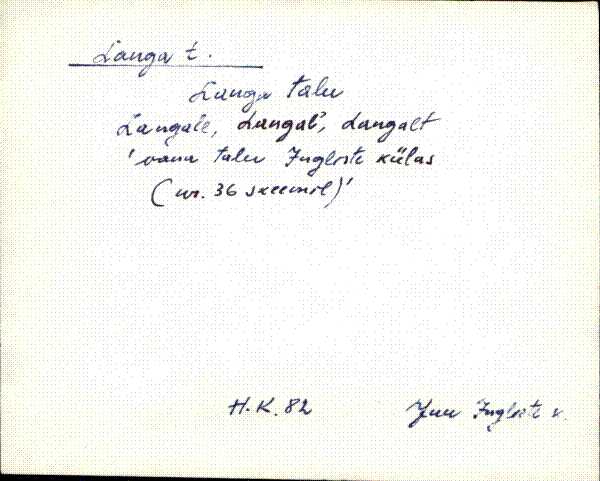 Langa t.
Langa talu
Langale, Langal, Langalt
'vana talu Ingliste külas
(nr. 36 skeemil)'
H.K. 82 Juu Ingliste k.